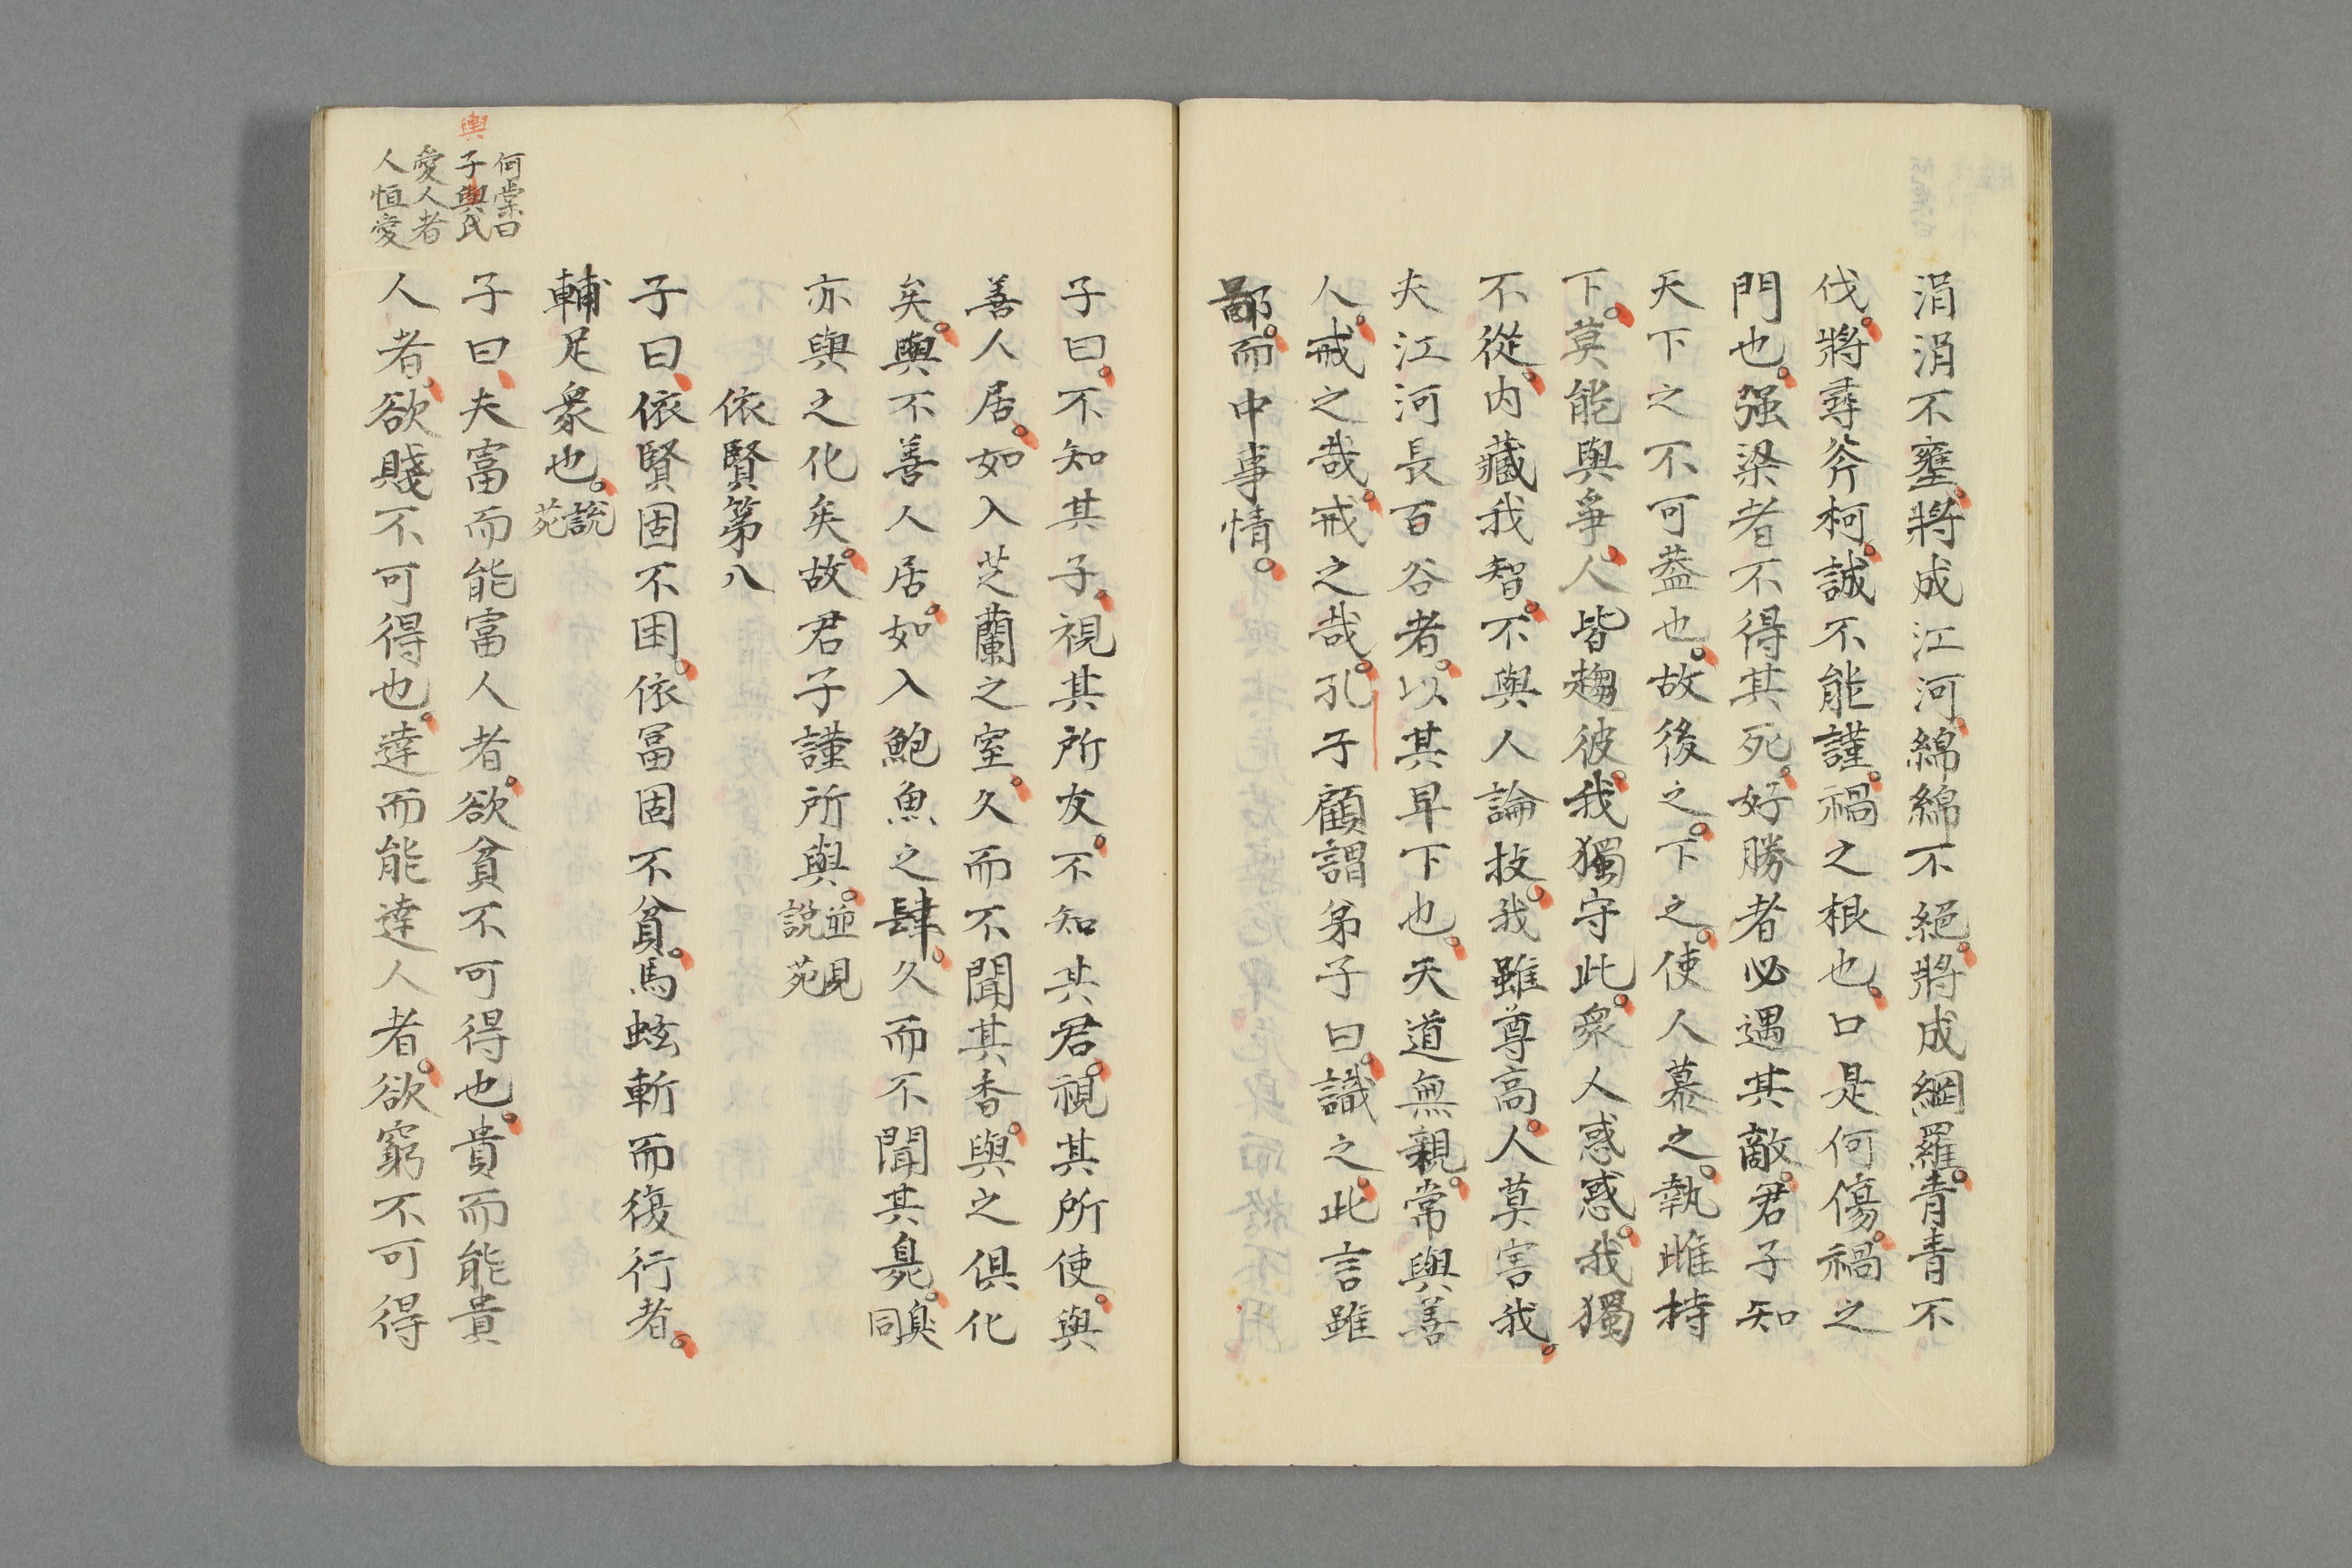 涓涓不壅。將成江河。綿綿不絕。將成網羅。青青不
伐。將尋斧柯。誠不能謹。禍之根也。口是何傷。禍之
門也。强梁者不得其死。好勝者必遇其敵。君子知
天下之不可蓋也。故後之。下之。使人慕之。執雌持
下。莫能與爭。人皆趨彼。我獨守此。衆人惑惑。我獨
不從。内藏我智。不與人論技。我雖尊高。人莫害我。
夫江河長百谷者。以其卑下也。天道無親。常與善
人。戒之哉。戒之哉。孔子顧謂弟子曰。識之。此言雖
鄙。而中事情。
子曰。不知其子。視其所友。不知其君。視其所使。與
善人居。如入芝蘭之室。久而不聞其香。與之俱化
矣。與不善人居。如入鮑魚之肆。久而不聞其臰。臭同
亦與之化矣。故君子謹所與。並見說苑
依賢第八
子曰、依賢固不困。依冨固不貧。馬蚿斬而復行者。
輔足衆也。說苑
子曰、夫富而能富人者。欲貧不可得也。貴而能貴
人者。欲賤不可得也。達而能達人者。欲窮不可得
何棠曰
子與氏
愛人者
人恒愛
輿